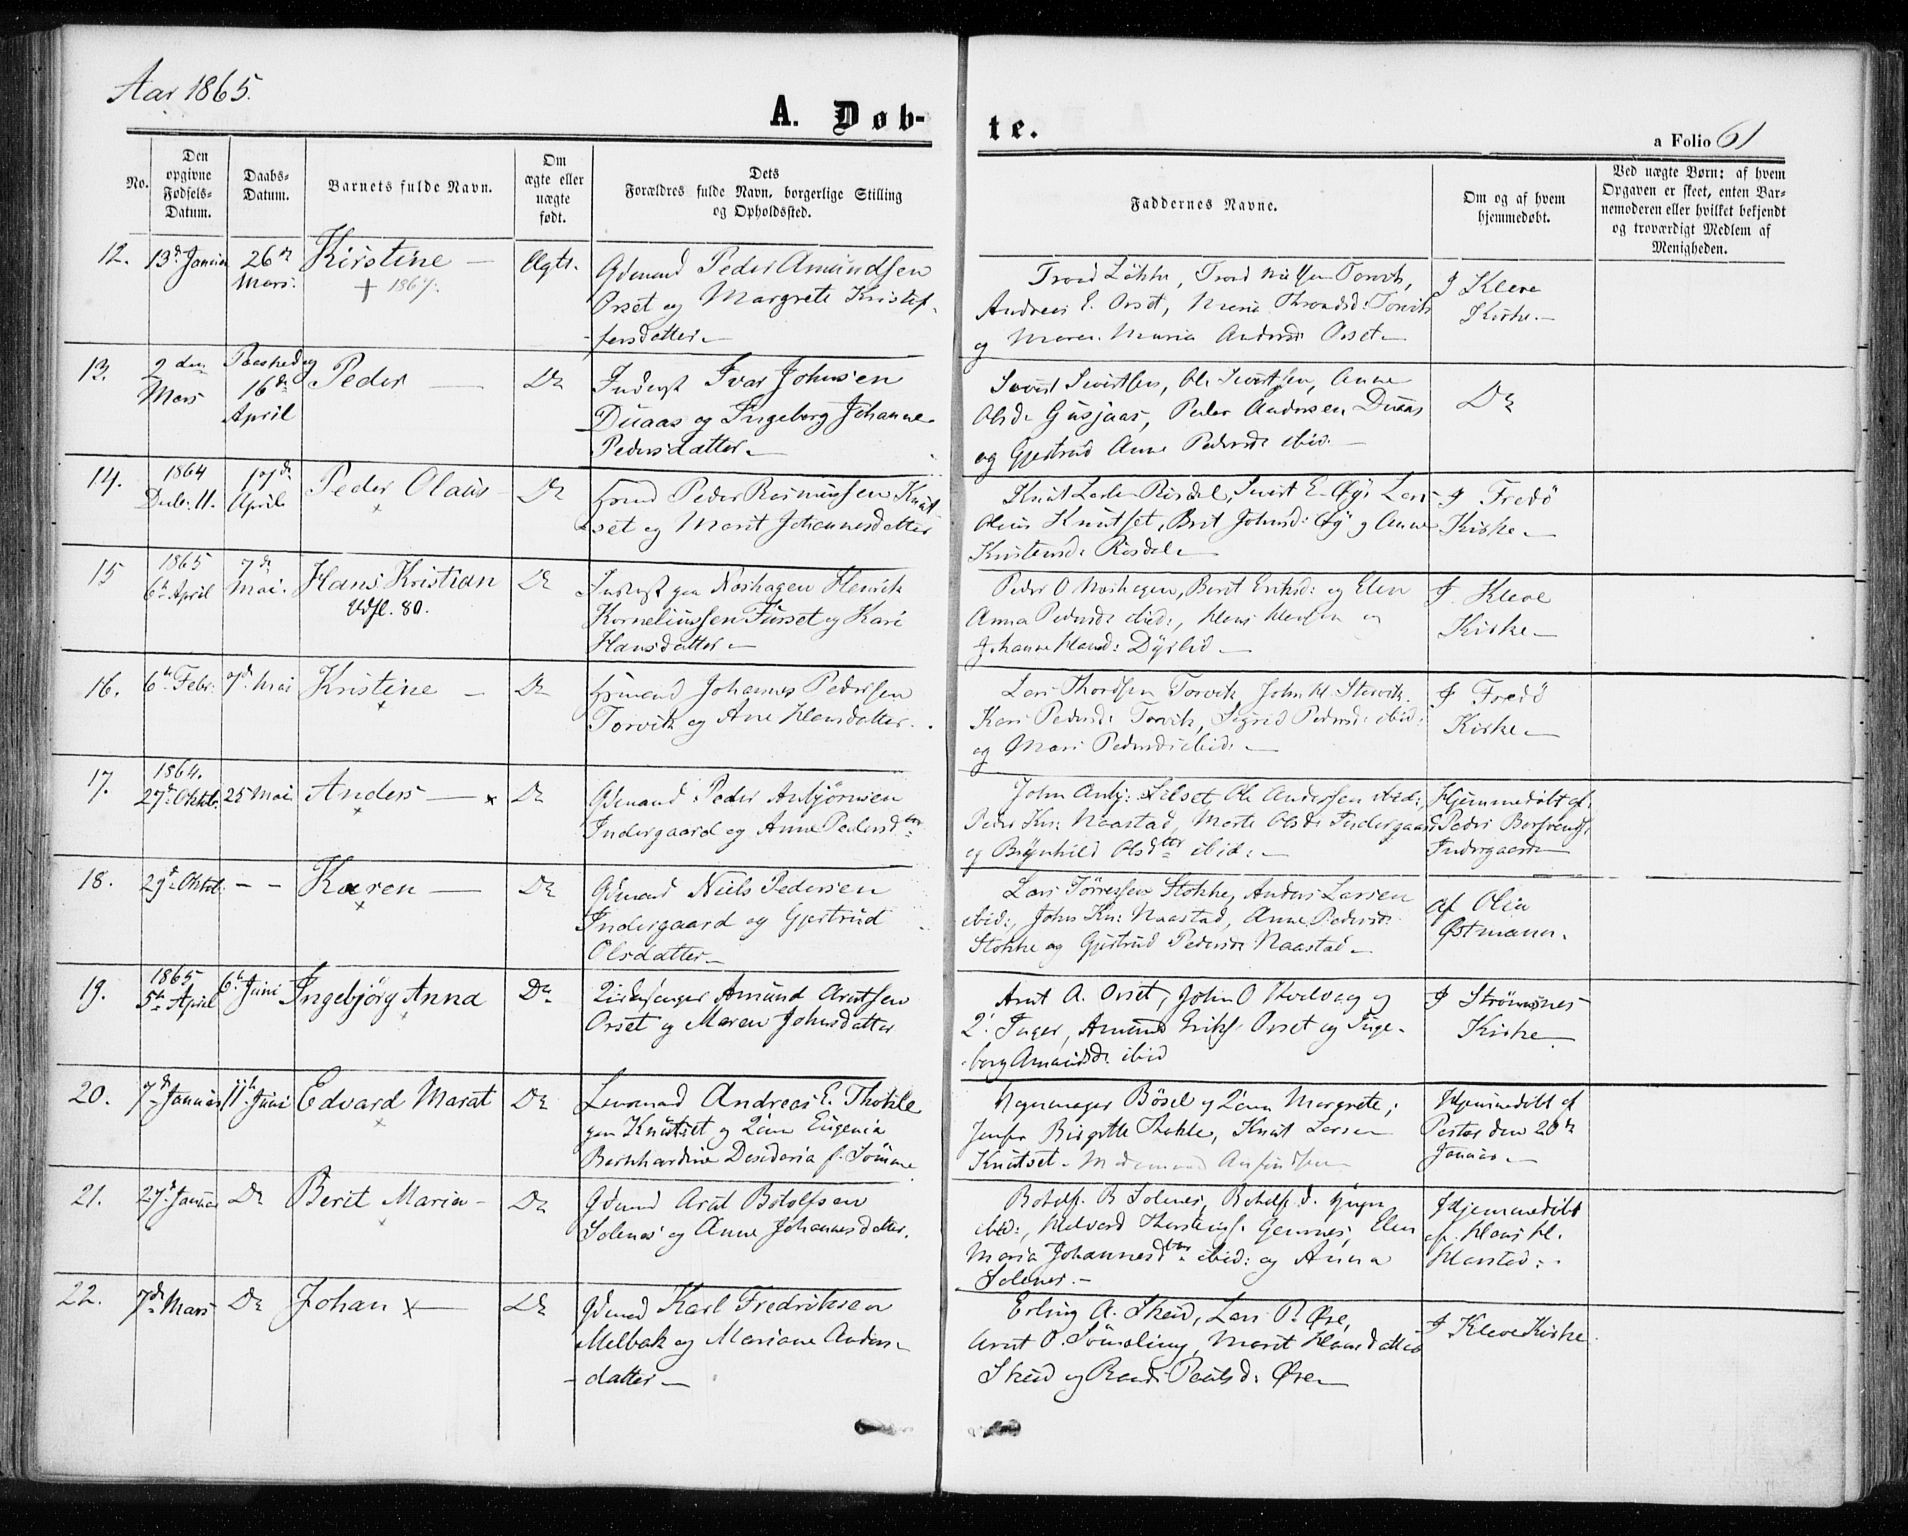 Aar 1865.
A. Døb-
te.
a Folio 61
No.
Den
opgivne
Fødsels-
Datum.
Daabs-
Datum.
Barnets fulde Navn.
Om
ægte eller
uægte
født.
Dets
Forældres fulde Navn, borgerlige Stilling
og Opholdssted.
Faddernes Navne.
Om og af hvem
hjemmedøbt.
Ved uægte Børn: af hvem
Opgaven er skeet, enten Bar-
nemoderen eller hvilket bekjendt
og troværdigt Medlem af
Menigheden.
12.
13de Januar
26de
Mars.
Kirstine —
+ 1867.
Ægte.
Gdmand Peder Amundsen
Orset og Margrete Kristof-
fersdatter
Trond Løkke, Trond Nielsen Torvik,
Andreas E. Orset, Torvik
og Maren Maria Orset
I Kleve
Kirke.
13.
2den
Mars
Paaskedag
16de
April
Peder —
Do
Inderst Ivar Johnsen
Duaas og Ingeborg Johanne
Pedersdatter
Sivert Sivertsen, Ole Sivertsen, Anne
Olsd: Gusjaas, Peder Andersen Duaas
og Gjertrud Anne Pedersd: ibid. —
Do
14.
1864
Decbr. 11.
17de
April
Peder Olaus
Do
Peder Rasmussen Knut-
set og Marit Johannesdatter
Knut Larsen Risdal, Sivert E. Øye Lars
Olaus Knutset, Brit Johnsd: Øy og Anne
Kristensd: Risdal
I Fredø
Kirke
15
1865
6te April
7de
Mai.
Hans Kristian
Udfl. 80.
Do
Inderst paa Noshagen Henrik
Korneliussen Furset og Kari
Hansdatter
Peder O Noshagen, Berit Eriksd: og Elen
Anna Pedersd: ibid:, Hans Hansen og
Johanne Hansd: Dyrlid
I. Kleve
Kirke
16.
6te Febr.
7de Mai
Kristine —
Do
Johannes Pedersen
Torvik og Ane Hansdatter.
Lars Thordsen Torvik, John H. Storvik
Kari Pedersd: Torvik, Sigrid Pedersd: ibid:
og Mari Pedersd: ibid: —
I Fredø
Kirke
17.
1864.
27de Oktbr.
25 Mai
Anders — x
Do
Gdmand Peder Anbjørnsen
Indergaard og Anne Pedersdtr
John Anbj: Silset Ole Andersen ibid:
Peder Kn: Naastad, Marte Olsd: Indergaard
og Brynhild Olsdtr ibid: —
Hjemmedøbt af
Peder
Indergaard
18.
29de Oktbr.
- -
Karen —
Do
Gdmand Niels Pedersen
Indergaard og Gjertrud
Olsdatter
Lars Tørresen Stokke, Anders Larsen
ibid:, John Kn: Naastad, Anne Pedersd:
Stokke og Gjertrud Pedersd: Naastad
af Olia
Østmann.
19.
1865
5te April
6te Juni
Ingebjørg Anna
Do
Amund Arntsen
Orset og Maren Johnsdatter
Arnt A. Orset, John O Kvelvaag og
Inger, Amund Eriks: Orset og Inge-
borg Amundsd: ibid
I Strømsnes
Kirke
20.
7de Januar
11te Juni
Edvard Marat
Do
Andreas E. Thokle
paa Knutset og Eugenia
Bernhardine Desideria f. Sømme
Bøsel og Margrete,
Birgitte Thokle, Knut Larsen
Knutset
Hjemmedøbt af
Pastor den 20de
Januar
21.
27de Januar
Do
Berit Maria
Do
Gdmand Arnt Botolfsen
Solenes og Anne Johannesdatter.
Botolf B Solenes, Botolf
ibid:, Halvard Thorstens: Elen
Maria Johannesdtr ibid: og Anna
Solenes.
Hjemmedøbt
af Hans H.
Harstad.
22.
7de Mars
Do
Johan x —
Do
Gdmand Karl Fredriksen
Melbak og Mariane Anders-
datter
Erling A. Skeid, Lars P. Øre,
Arnt O. Marit Hansdatter
Skeid og Randi Paulsd: Øre
I Kleve Kirke